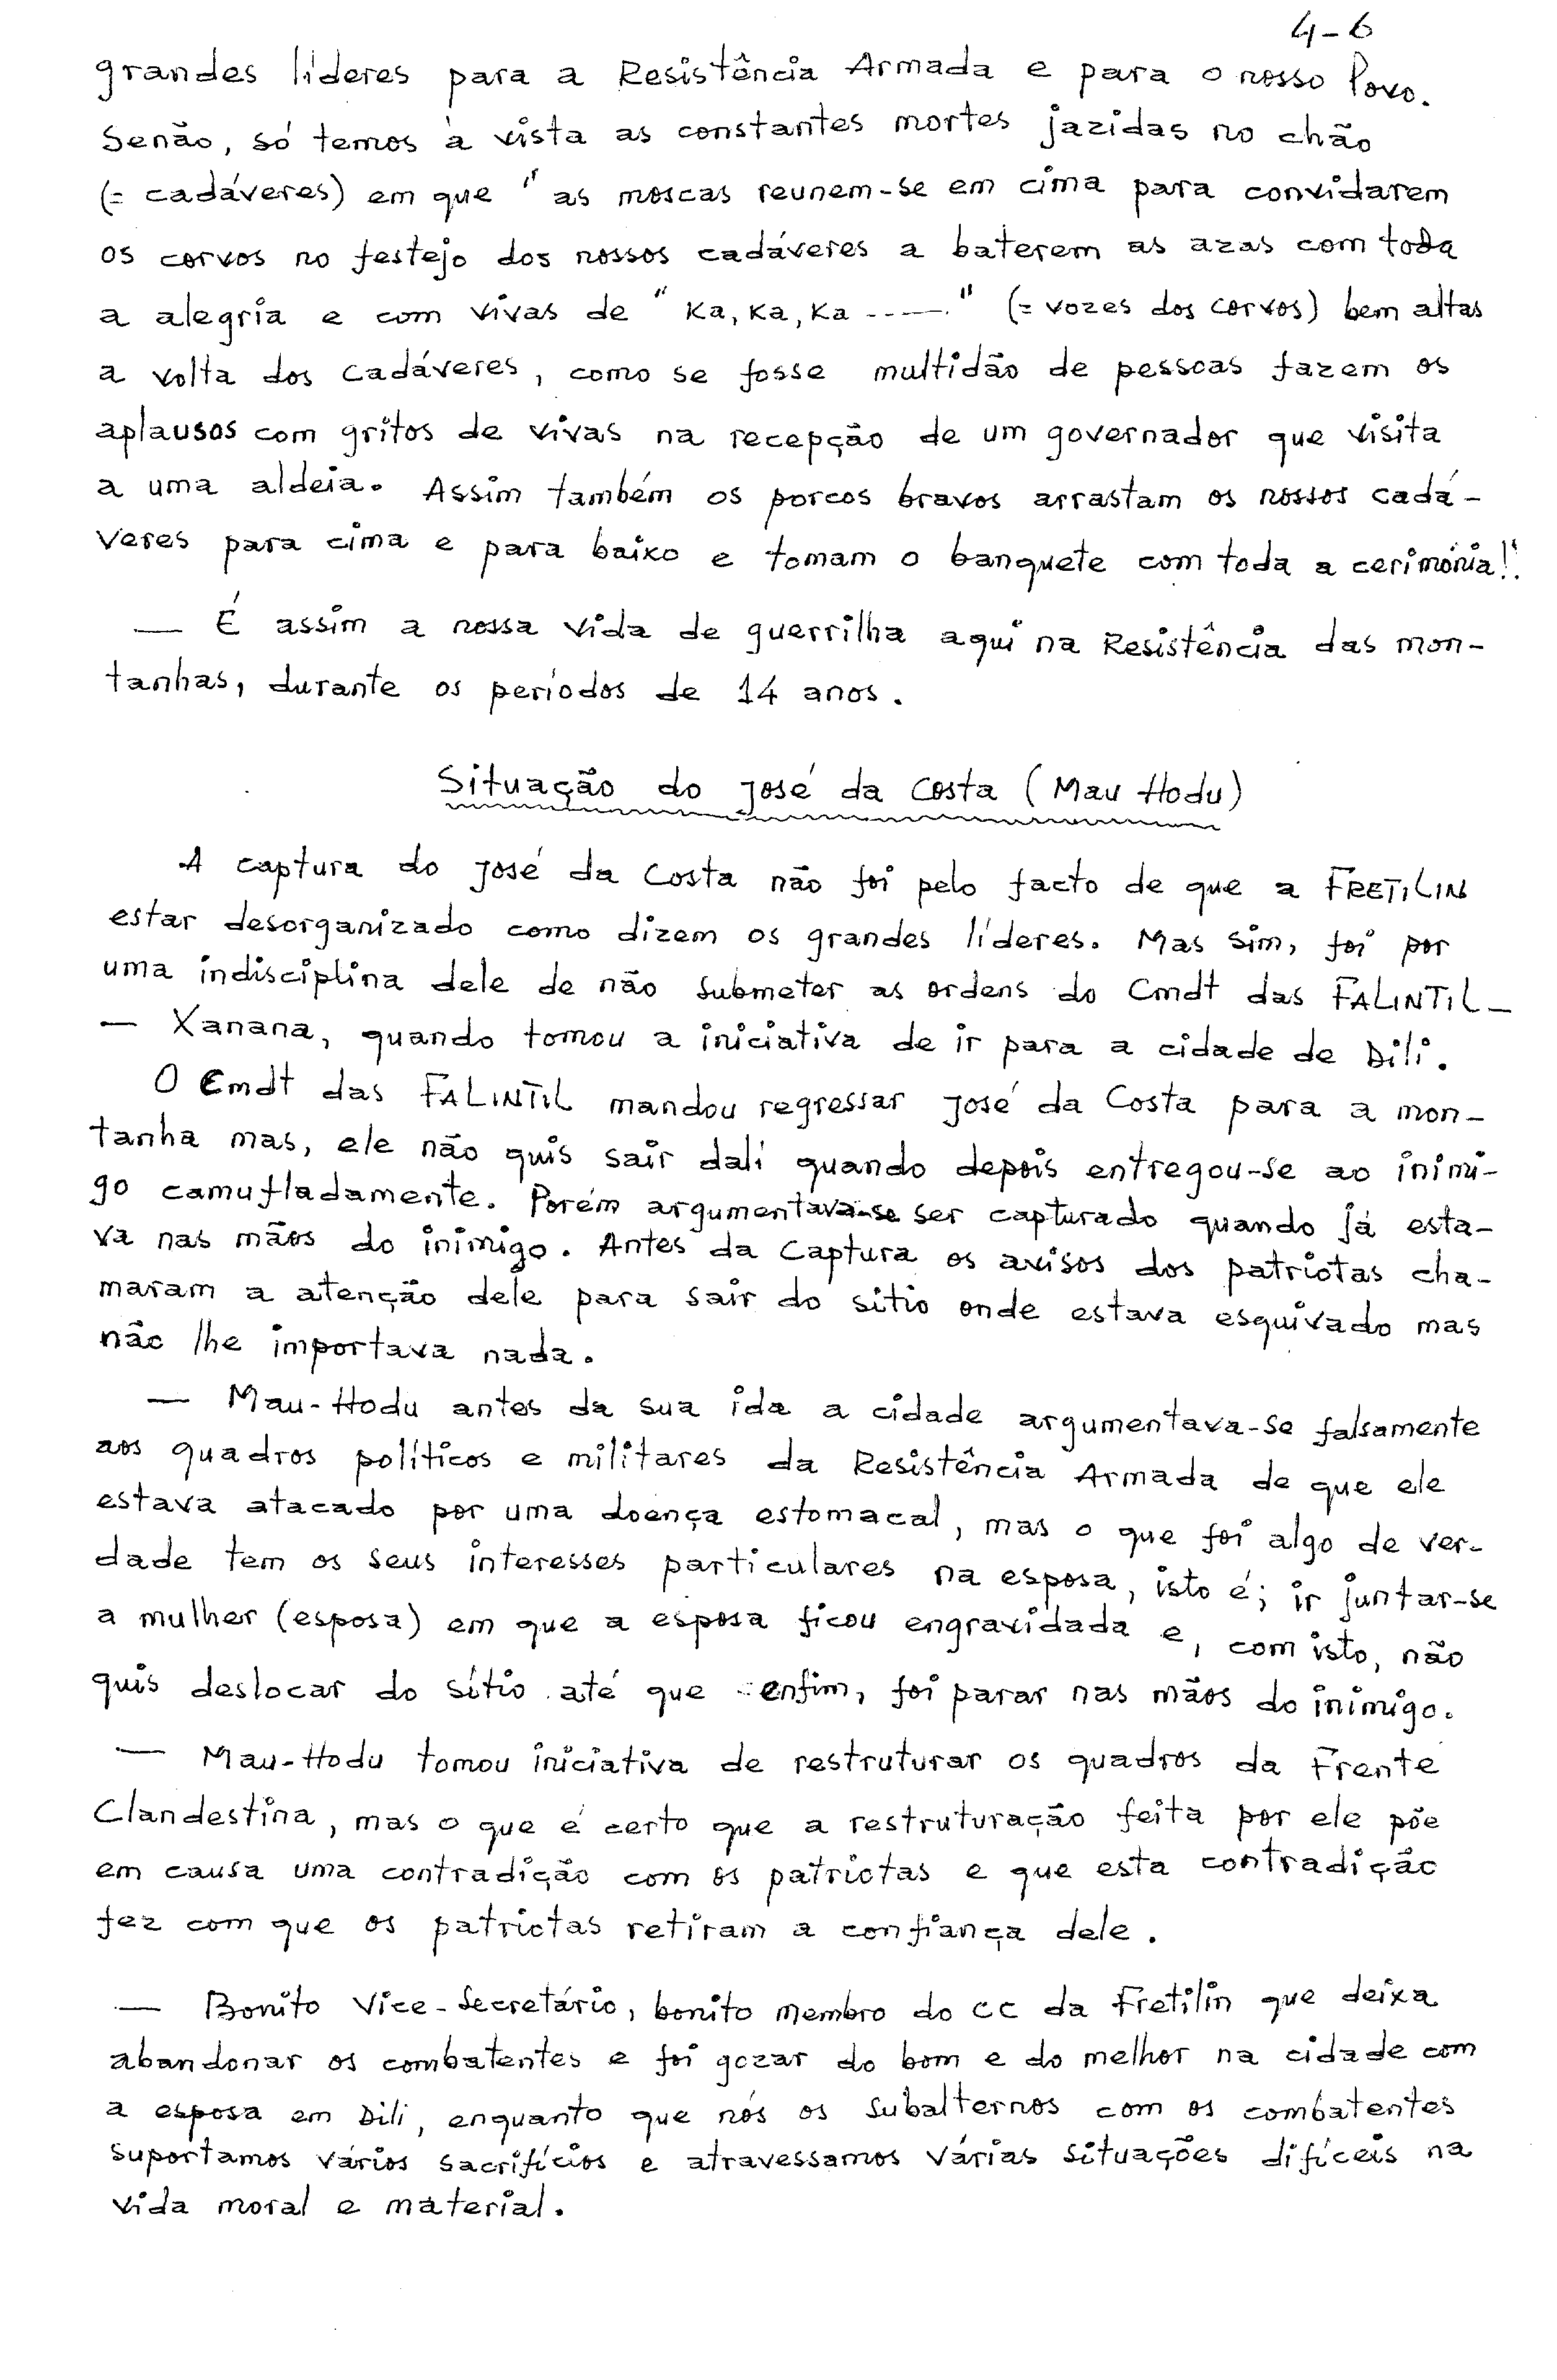 4-6
grandes líderes para a Resistência Armada e para o nosso Povo.
Senão, só temos à vista as constantes mortes jazidas no chão
(= cadáveres) em que " as moscas reunem-se em cima para convidarem
os corvos no festejo dos nossos cadáveres a baterem as azas com toda
a alegria e com vivas de " Ka, Ka, Ka -----" (= vozes dos corvos) bem altas
a volta dos cadáveres, como se fosse multidão de pessoas fazem os
aplausos com gritos de vivas na recepção de um governador que visita
a uma aldeia. Assim também os porcos bravos arrastam os nossos cadá-
veres para cima e para baixo e tomam o banquete com toda a cerimónia!"
— É assim a nossa vida de guerrilha aqui na Resistência das mon-
tanhas, durante os períodos de 14 anos.
Situação do José da Costa (Mau Hodu)
A captura do José da Costa não foi pelo facto de que a FRETILIN
estar desorganizado como dizem os grandes líderes. Mas sim, foi por
uma indisciplina dele de não submeter as ordens do Cmdt das FALINTIL -
— Xanana, quando tomou a iniciativa de ir para a cidade de Dili.
O Cmdt das FALINTIL mandou regressar José da Costa para a mon-
tanha mas, ele não quis sair dali quando depois entregou-se ao inimi-
go camufladamente. Porém argumentava-se ser capturado quando já esta-
va nas mãos do inimigo. Antes da captura os avisos dos patriotas cha-
maram a atenção dele para sair do sitio onde estava esquivado mas
não lhe importava nada.
— Mau-Hodu antes da sua ida a cidade argumentava-se falsamente
aos quadros políticos e militares da Resistência Armada de que ele
estava atacado por uma doença estomacal, mas o que foi algo de ver-
dade tem os seus interesses particulares na esposa, isto é; ir juntar-se
a mulher (esposa) em que a esposa ficou engravidada e, com isto, não
quis deslocar do sítio até que enfim, foi parar nas mãos do inimigo.
— Mau-Hodu tomou iniciativa de restruturar os quadros da Frente
Clandestina, mas o que é certo que a restruturação feita por ele põe
em causa uma contradição com os patriotas e que esta contradição
fez com que os patriotas retiram a confiança dele.
— Bonito Vice-Secretário, bonito membro do CC da Fretilin que deixa
abandonar os combatentes e foi gozar do bom e do melhor na cidade com
a esposa em Dili, enquanto que nós os subalternos com os combatentes
suportamos vários sacrifícios e atravessamos várias situações difíceis na
vida moral e material.